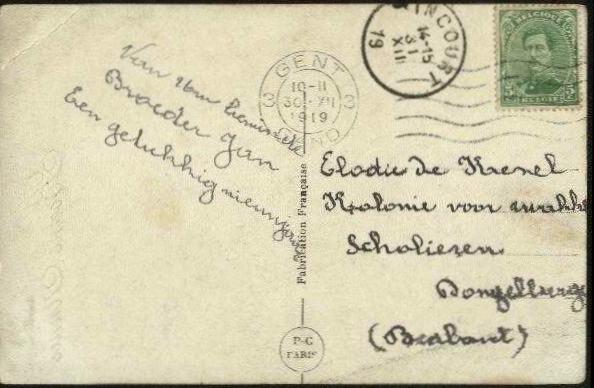 Van Uw beminde
Broeder Jan
Een gelukkig nieuwjaar
GENT
3 10-11 3
30·XII
1919
GAND
INCOURT
14-15
31
XII
19
BELGIQUE
5 5
BELGIE
Elodie de Kresel
Kolonie voor zwakke
Scholieren
Dongelberg
(Brabant)
Fabrication Française
P-C
PARIS